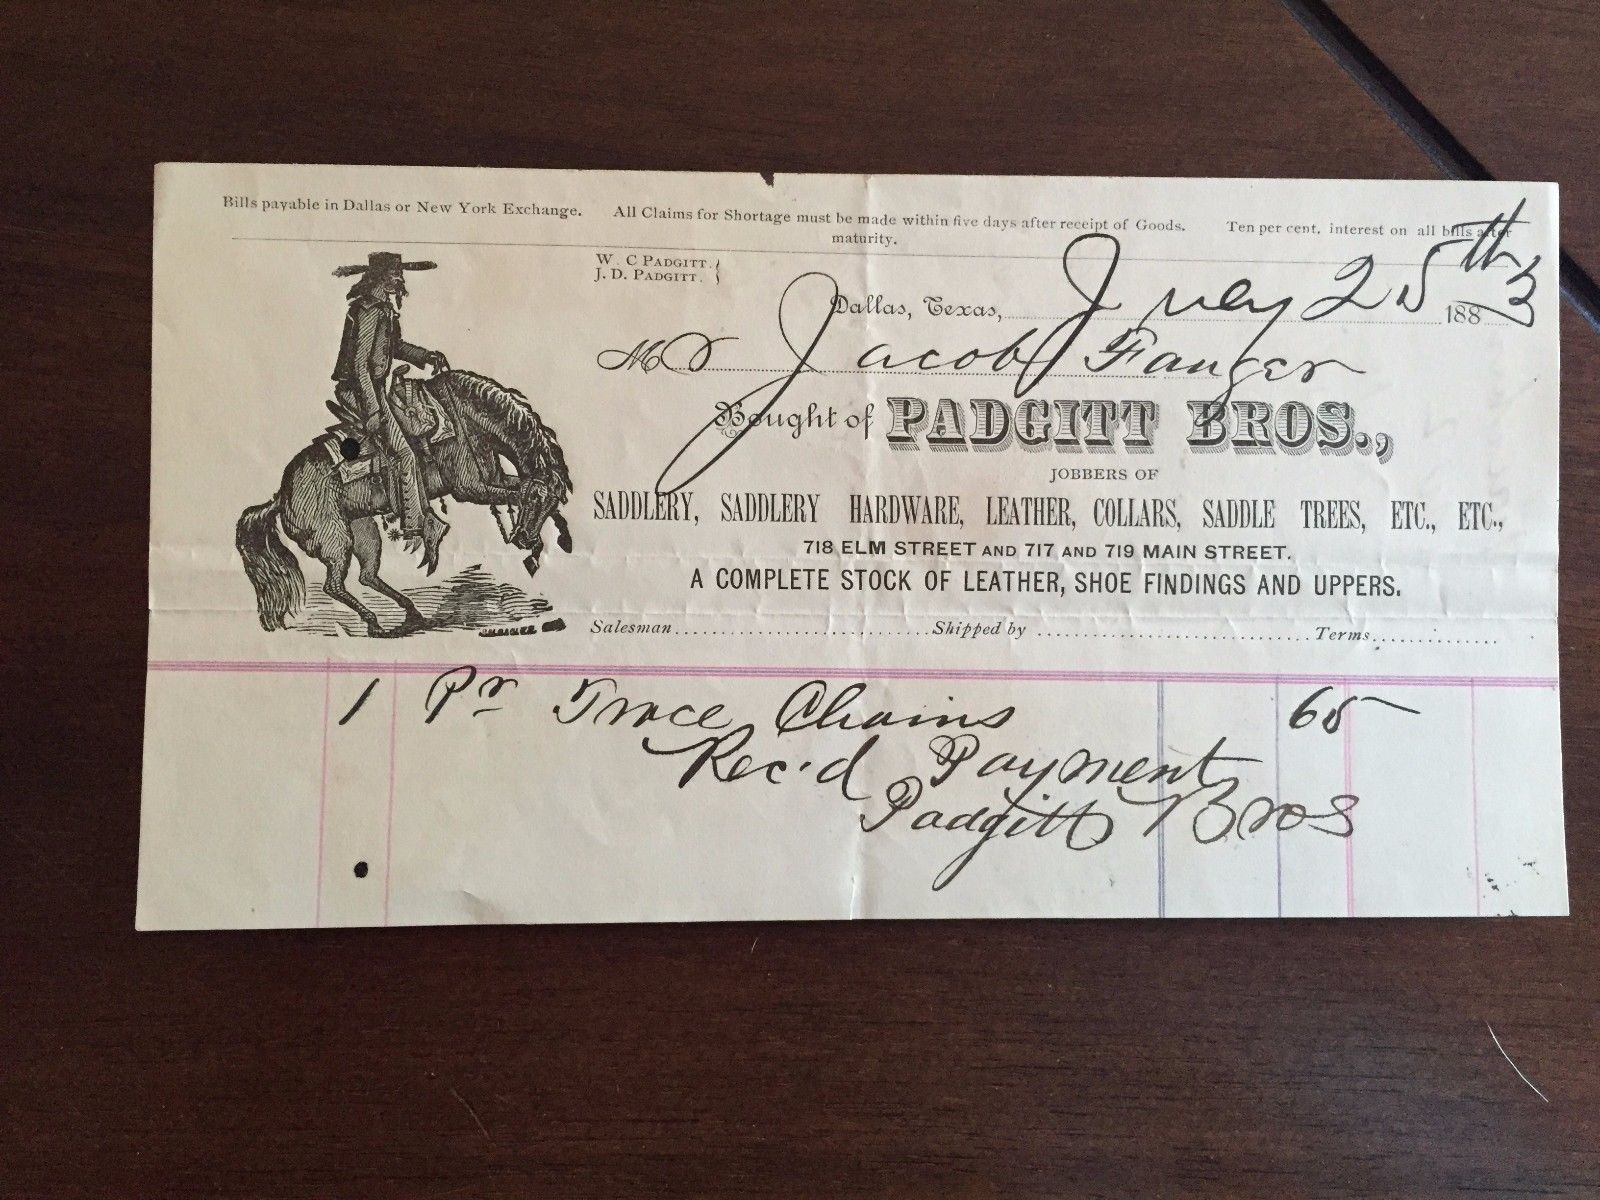 Bills payable in Dallas or New York Exchange. All Claims for Shortage must be made within five days after receipt of Goods. Ten per cent. interest on all bills after
maturity.
W. C PADGITT.
J. D. PADGITT.
Dallas, Texas, July 25th 1883
Mr Jacob Fanger
Bought of PADGITT BROS.,
JOBBERS OF
SADDLERY, SADDLERY HARDWARE, LEATHER, COLLARS, SADDLE TREES, ETC., ETC.,
718 ELM STREET AND 717 AND 719 MAIN STREET.
A COMPLETE STOCK OF LEATHER, SHOE FINDINGS AND UPPERS.
Salesman.............................Shipped by ...............................Terms..............
1 Pr Trace Chains 65
Rec'd Payment
Padgitt Bros